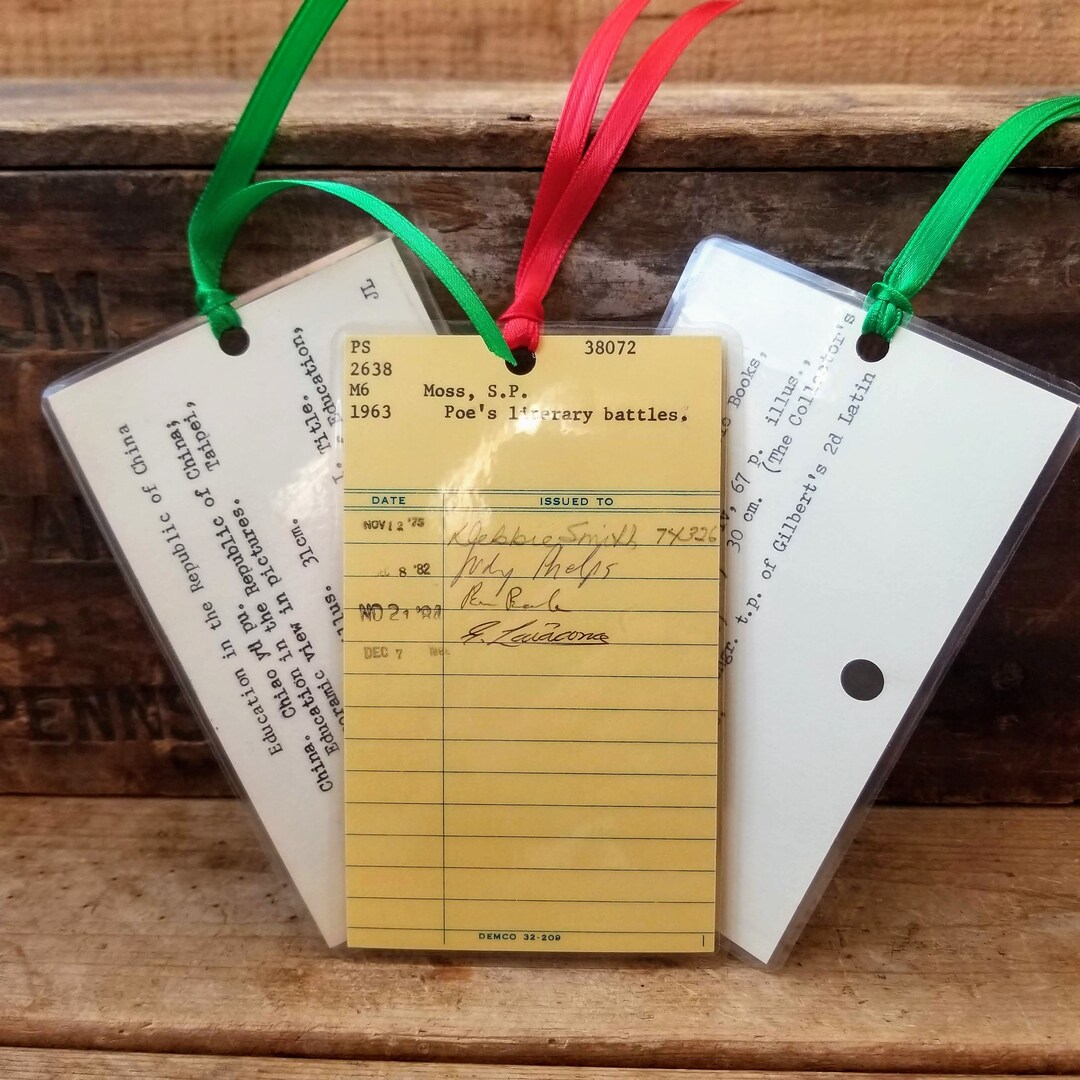 PS 38072
2638
M6 Moss, S.P.
1963 Poe's literary battles.
DATE ISSUED TO
NOV 12 '75 Debbie Smith 74326
8 '82 Judy Phelps
NO 21
DEC 7
DEMCO 32-209
JL
I. Title.
Education,
Education in the Republic of China
Chiao yü pu.
Taipei,
Education in the Republic of China;
view in pictures.
illus. 31cm.
China.
Education in the
Books,
67 p. illus.,
30 cm. (The Collector's
t.p. of Gilbert's 2d Latin
OM
PENNS